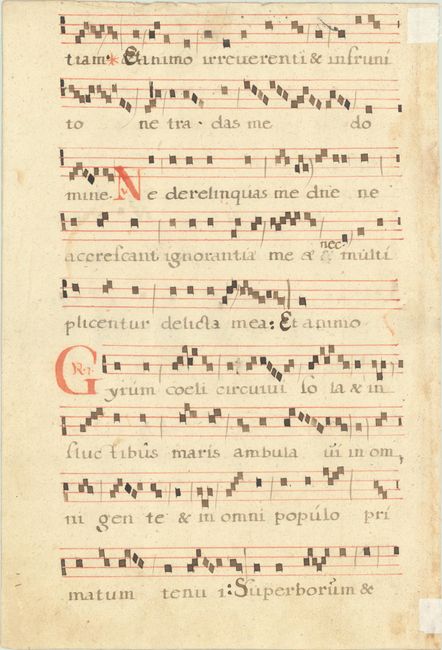 tiam * Et animo irreuerenti & infruni
to ne tra. das me do
mine. Ne derelinquas me dñe ne
accrescant ignorantiæ meæ & nec multi
plicentur delicta mea: Et animo
Rꝭ. Gyrum coeli circuiui so la & in
fluc tibus maris ambula ui in om,
ni gen te & in omni populo pri
matum tenu i: Superborum &